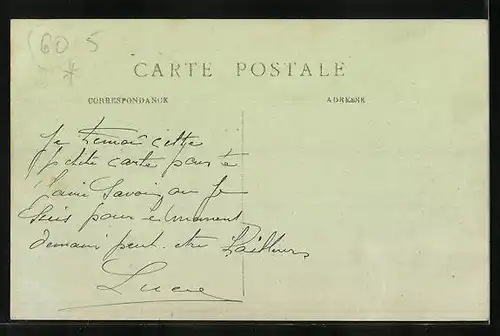 60 5
*
CARTE POSTALE
CORRESPONDANCE
ADRESSE
Je t'envoi cette
petite carte pour te
faire Savoir ou Je
Suis pour le moment
demain peut. etre
Lucie